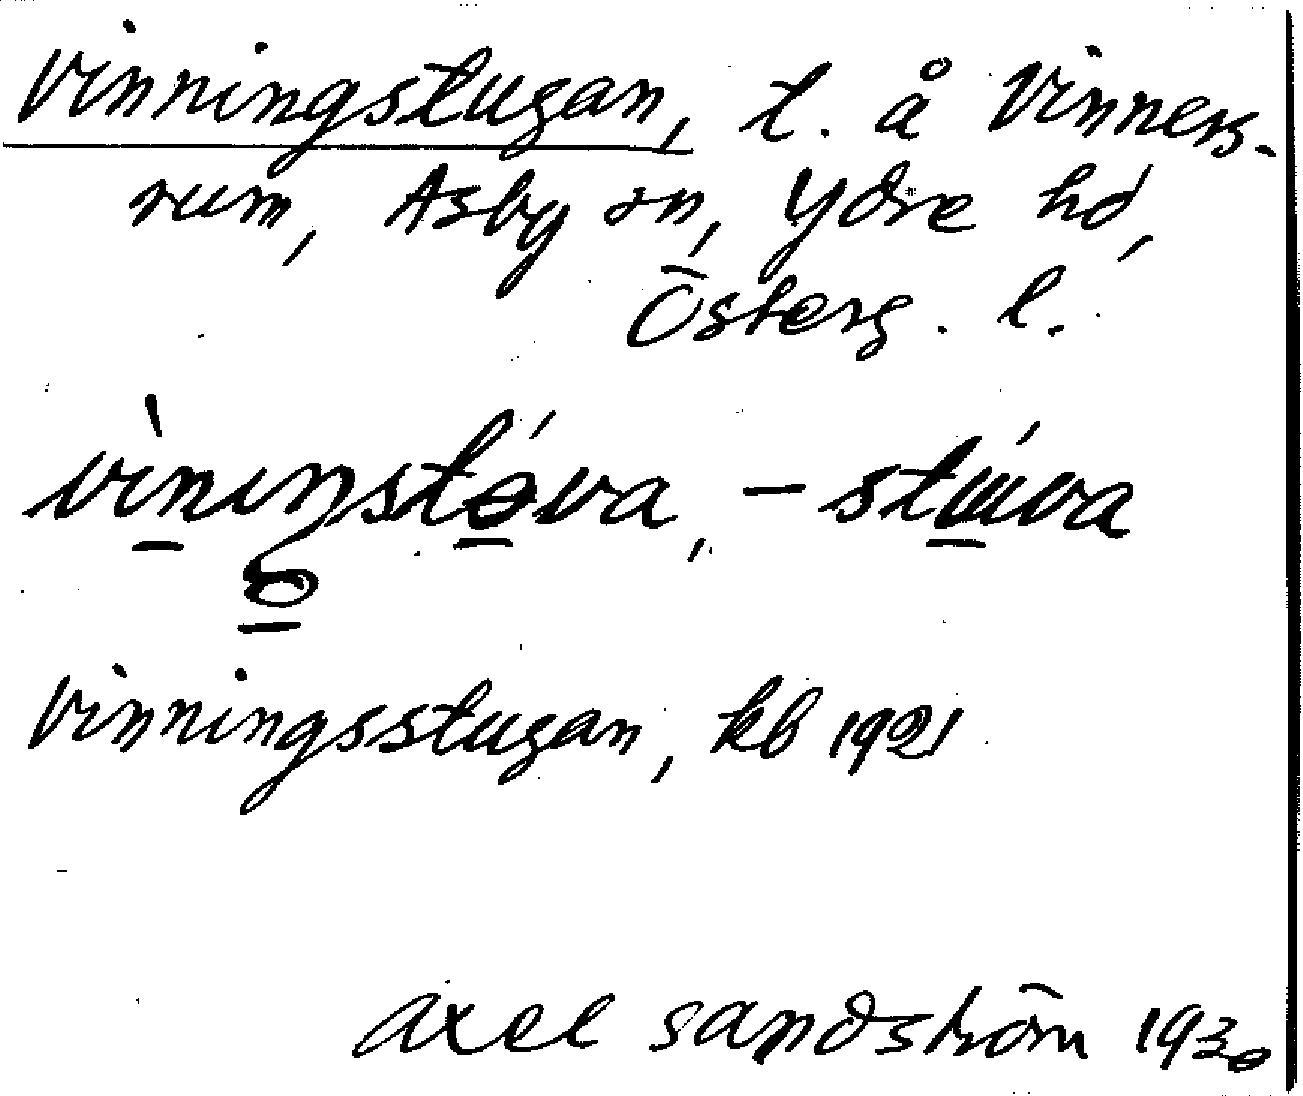 Vinningstugan, t. å Vinners-
rum, Asby sn, Ydre hd,
Österg. l.
vìnıŋstə́va, – stúva
Vinningsstugan, kb 1921
Axel Sandström 1930